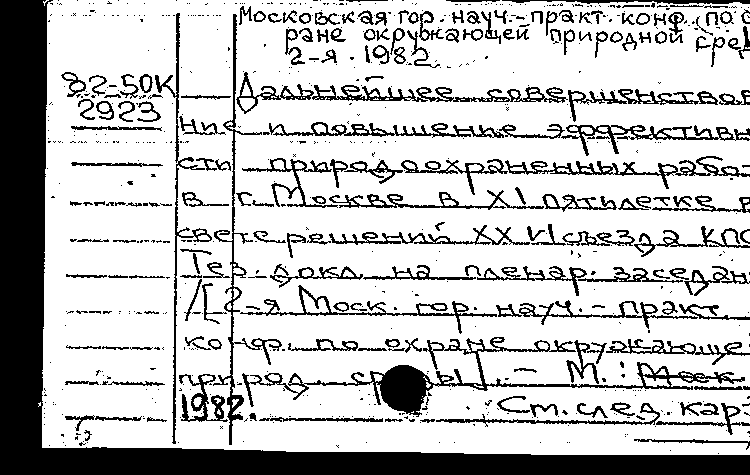 Московская гор. науч.-практ. конф. (по о
ране окружающей природной сред
2-я. 1982
82-50К
2923
Дальнейшее совершенствов
ние и повышение эффективн
сти природоохраненных работ
в г. Москве в XI пятилетке в
свете решений XXVI съезда КПС
Тез. докл. на пленар. заседан
/[2-я Моск. гор. науч.-практ.
конф. по охране окружающе
природ. среды]. - М.: Моск
1982.
Ст. след. кар